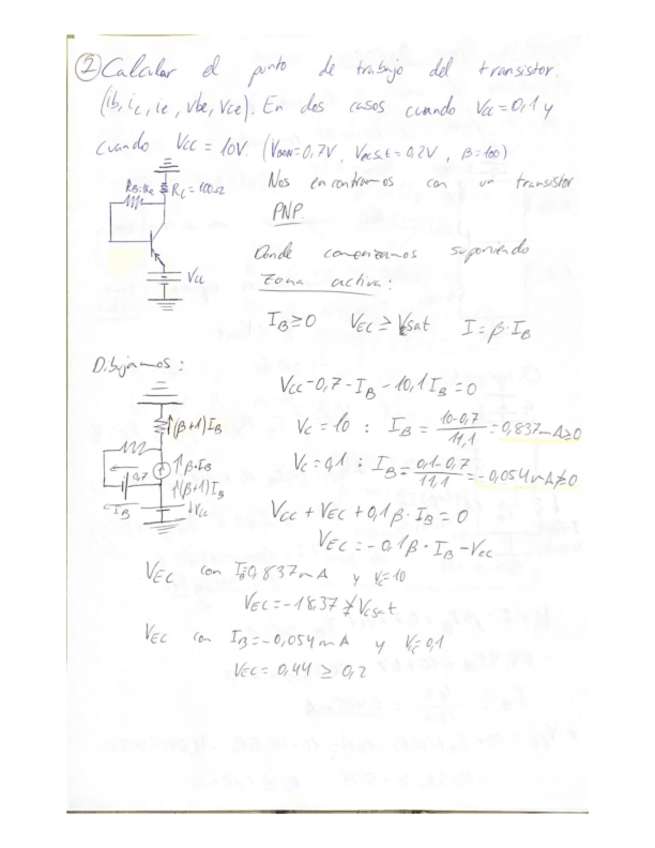 ② Calcular el punto de trabajo del transistor.
(ib, ic, ie, vbe, vce). En dos casos cuando Vcc=0,1 y
cuando Vcc = 10V. (VBEON=0,7V, VecSat=0,2V, β=100)
RL=100Ω
Nos encontramos con un transistor
PNP.
Vcc
Donde comenzamos suponiendo
zona activa:
IB≥0 VEC≥Vsat I=β·IB
Dibujamos:
Vcc-0,7-IB-10,1IB=0
↑(β+1)IB
Vc=10 : IB = 10-0,7/11,1 = 0,837mA≥0
0,7 ↑β·IB
Vc=0,1 : IB = 0,1-0,7/11,1 = -0,054mA≱0
↑(β+1)IB
IB ↓Vcc
Vcc+VEC+0,1β·IB=0
VEC=-0,1β·IB-Vcc
VEC con IB=0,837mA y Vc=10
VEC=-18,37 ≱ Vcsat
VEC con IB=-0,054mA y Vc=0,1
VEC=0,44 ≥ 0,2